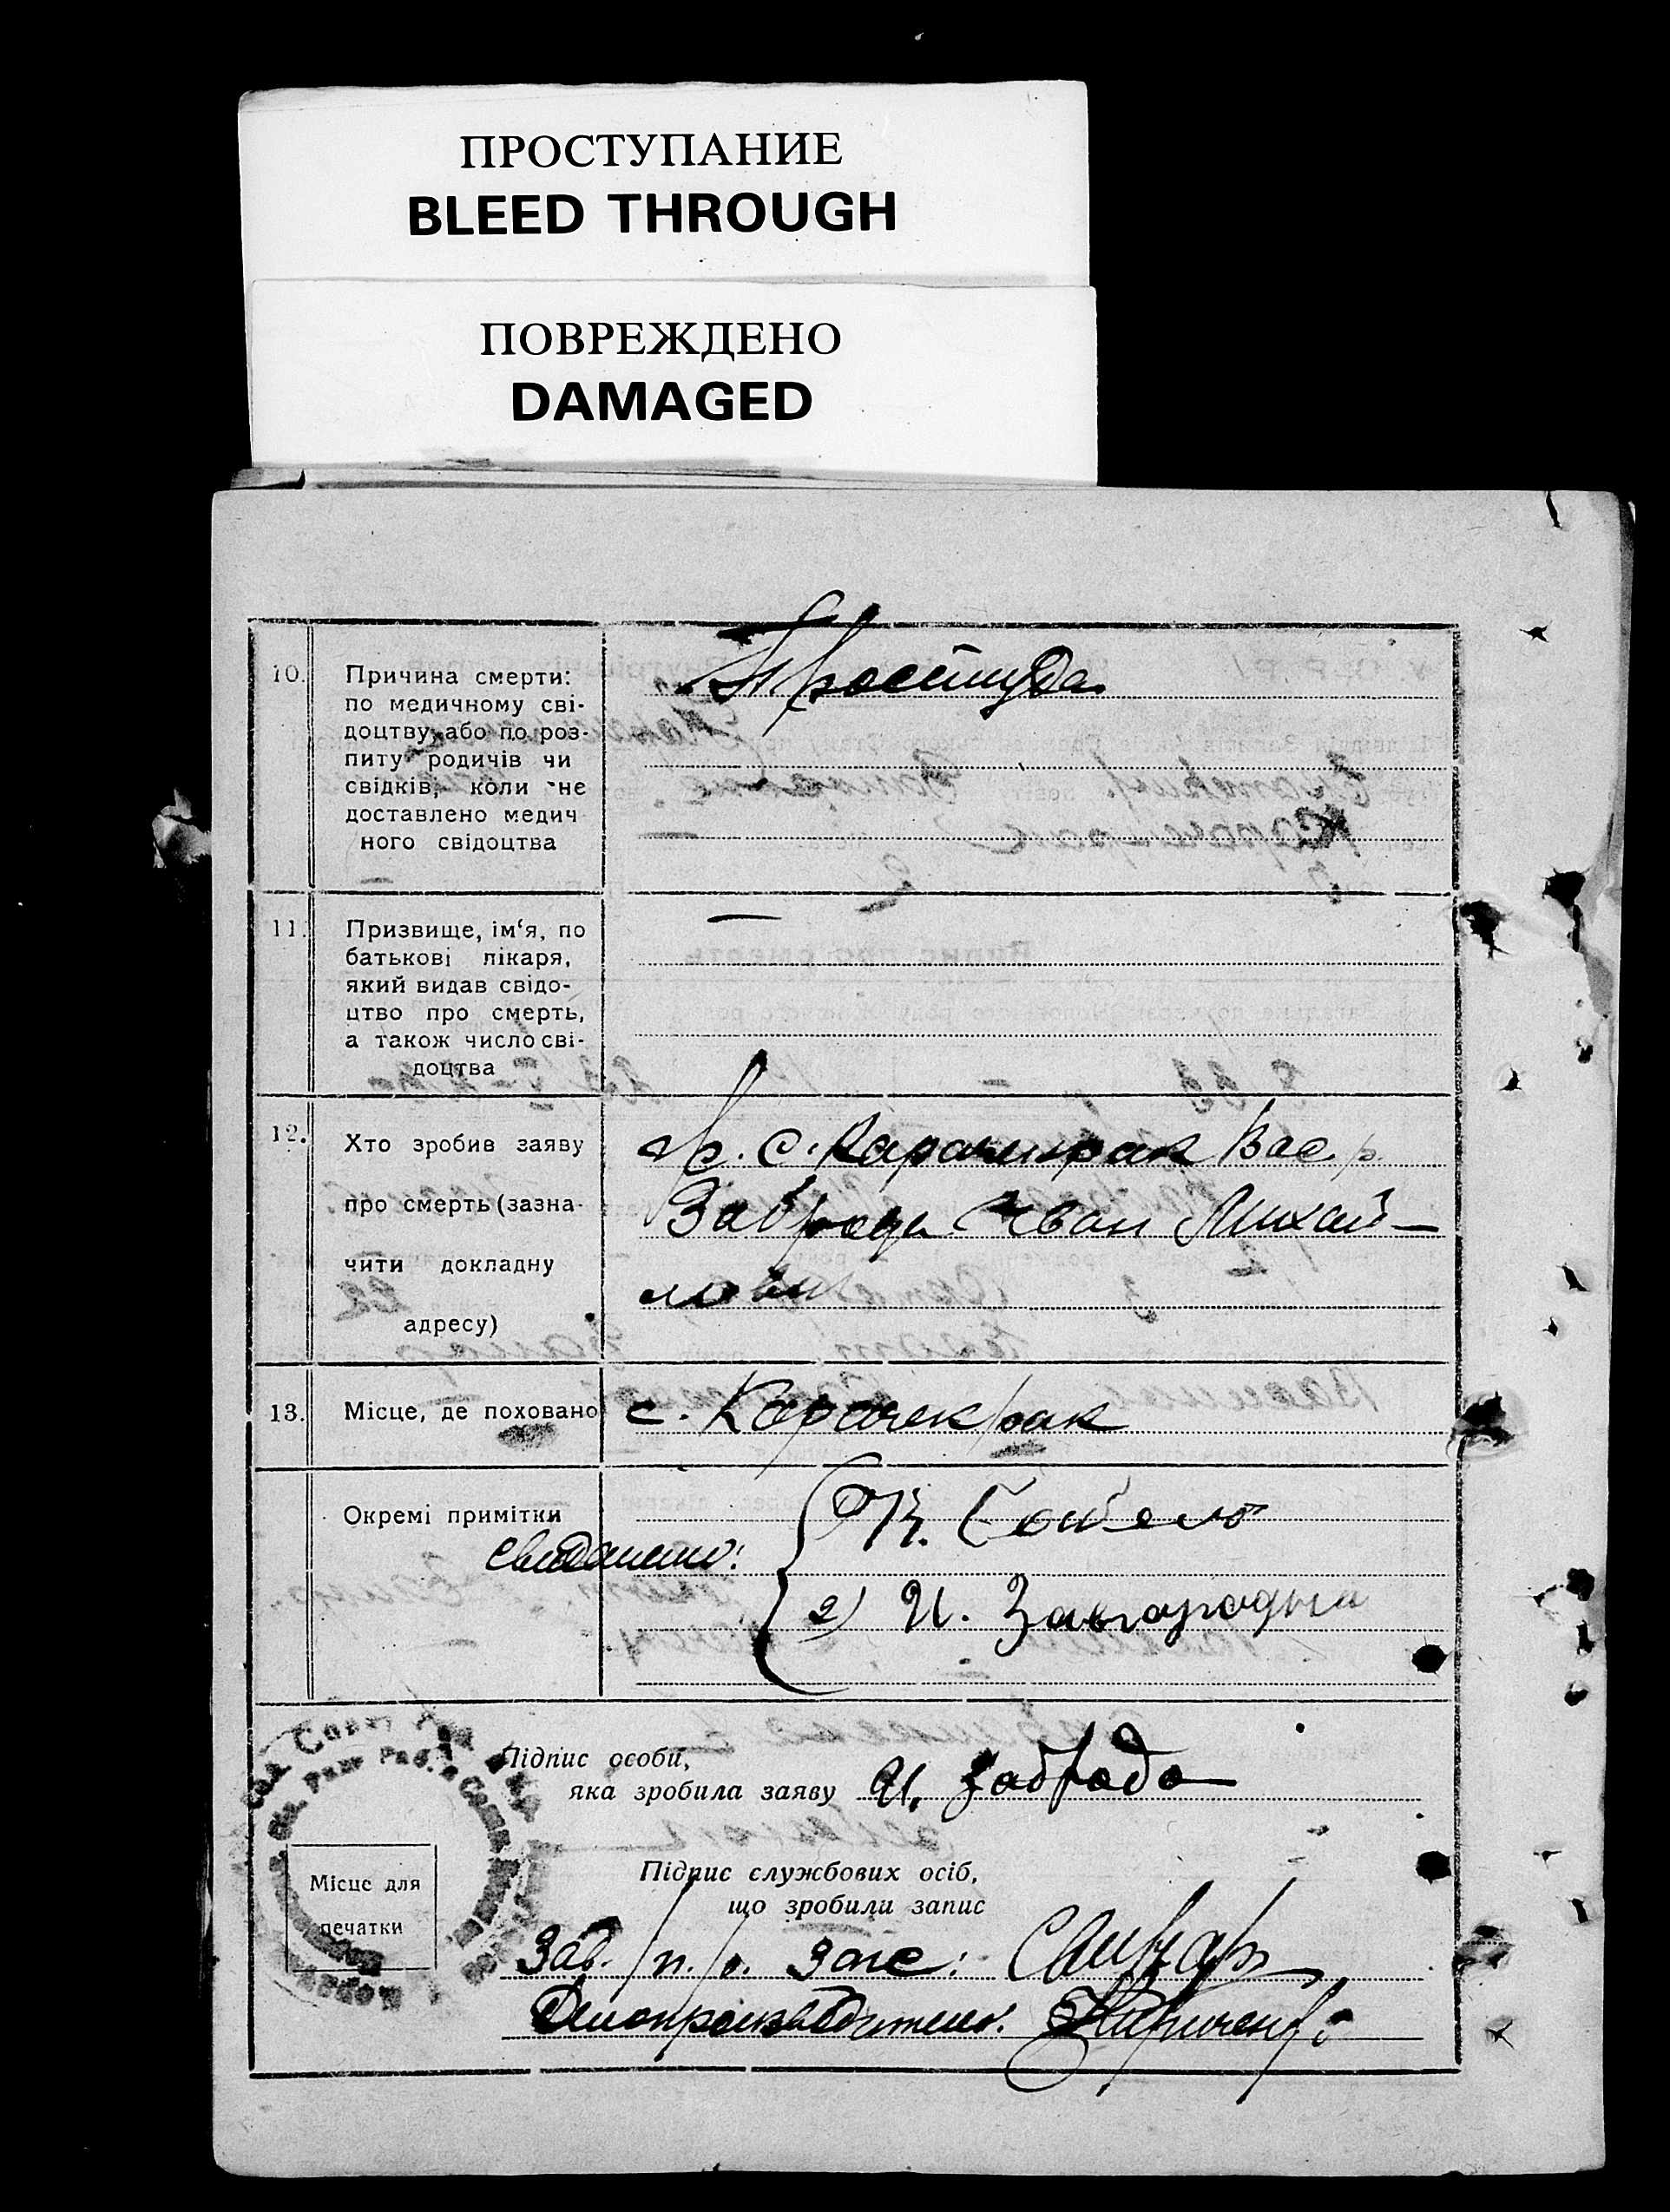 ПРОСТУПАНИЕ
BLEED THROUGH
ПОВРЕЖДЕНО
DAMAGED
10.
Причина смерти:
по медичному сві-
доцтву або по роз-
питу родичів чи
свідків, коли не
доставлено медич
ного свідоцтва
Простуда
11.
Призвище, ім‘я, по
батькові лікаря,
який видав свідо-
цтво про смерть,
а також число сві-
доцтва
—
12.
Хто зробив заяву
про смерть (зазна-
чити докладну
адресу)
гр. с. Карачекрак Вас. р.
Заброда Иван Михай-
лович
13.
Місце, де поховано
с. Карачекрак
Окремі примітки
свидетели:
2) И. Завгородный
Підпис особи,
яка зробила заяву И. Заброда
Місце для
печатки
Підпис службових осіб,
що зробили запис
Зав. п. о. загс:
Делопроизводитель.